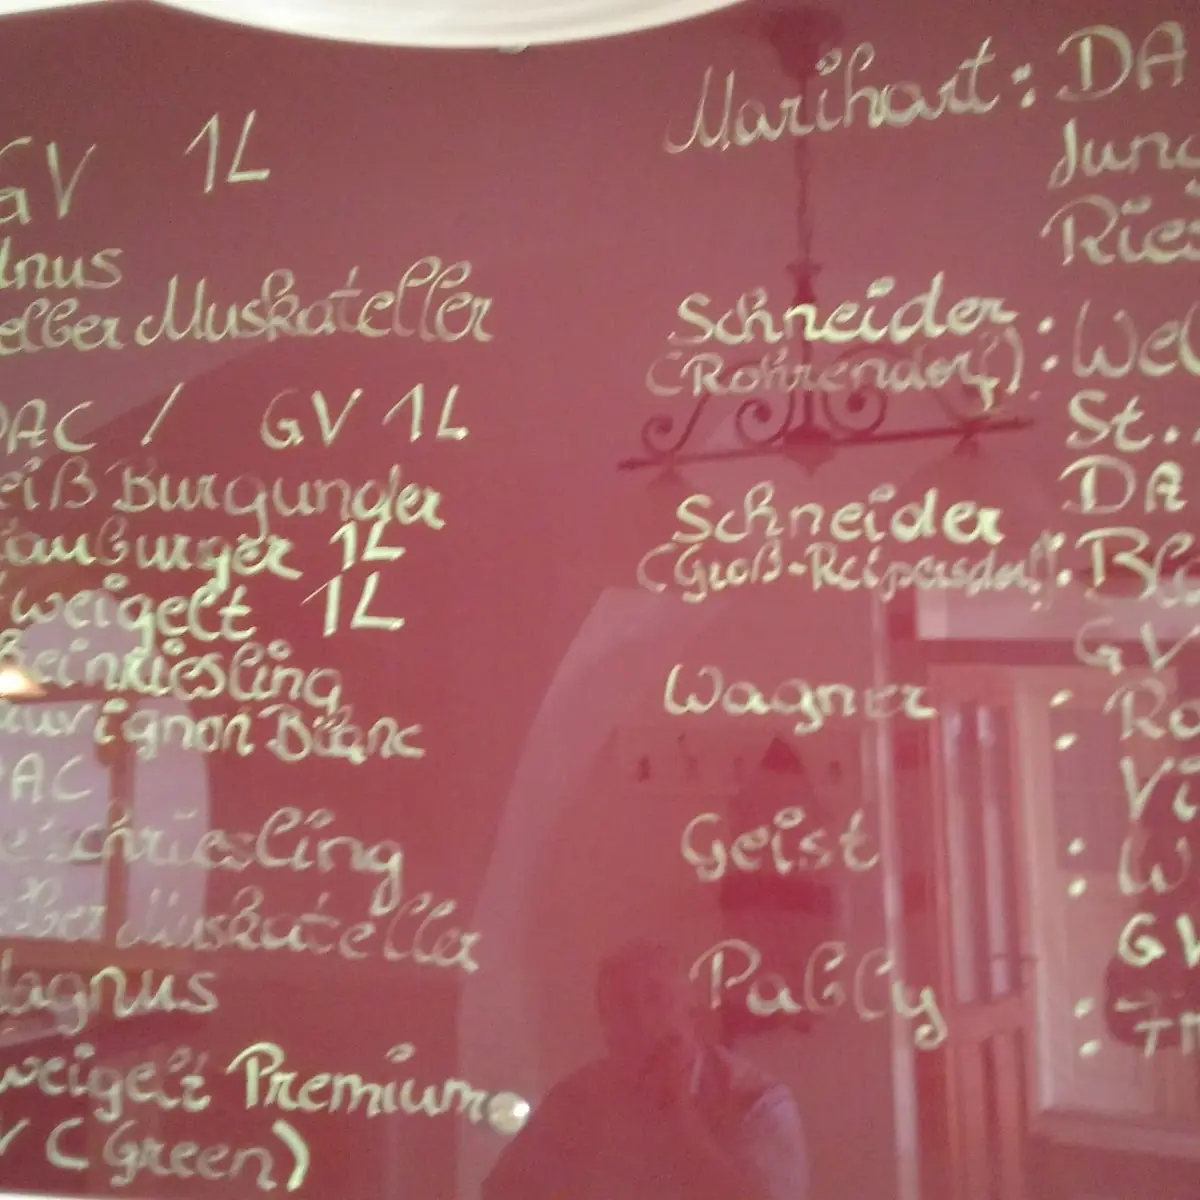 GV 1L
lnus
elber Muskateller
DAC / GV 1L
eiß Burgunder
lauburger 1L
weigelt 1L
Rheinriesling
auvignon Blanc
DAC
elschriesling
elber Muskateller
Magnus
weigelt Premium
V (Green)
Marihart : DA
Jung
Ries
Schneider
(Rohrendorf) : Wel
St.
DA
Schneider
(Groß-Reipersdorf) : Bla
GV
Wagner : Ro
Vi
Geist : W
GV
Pably :